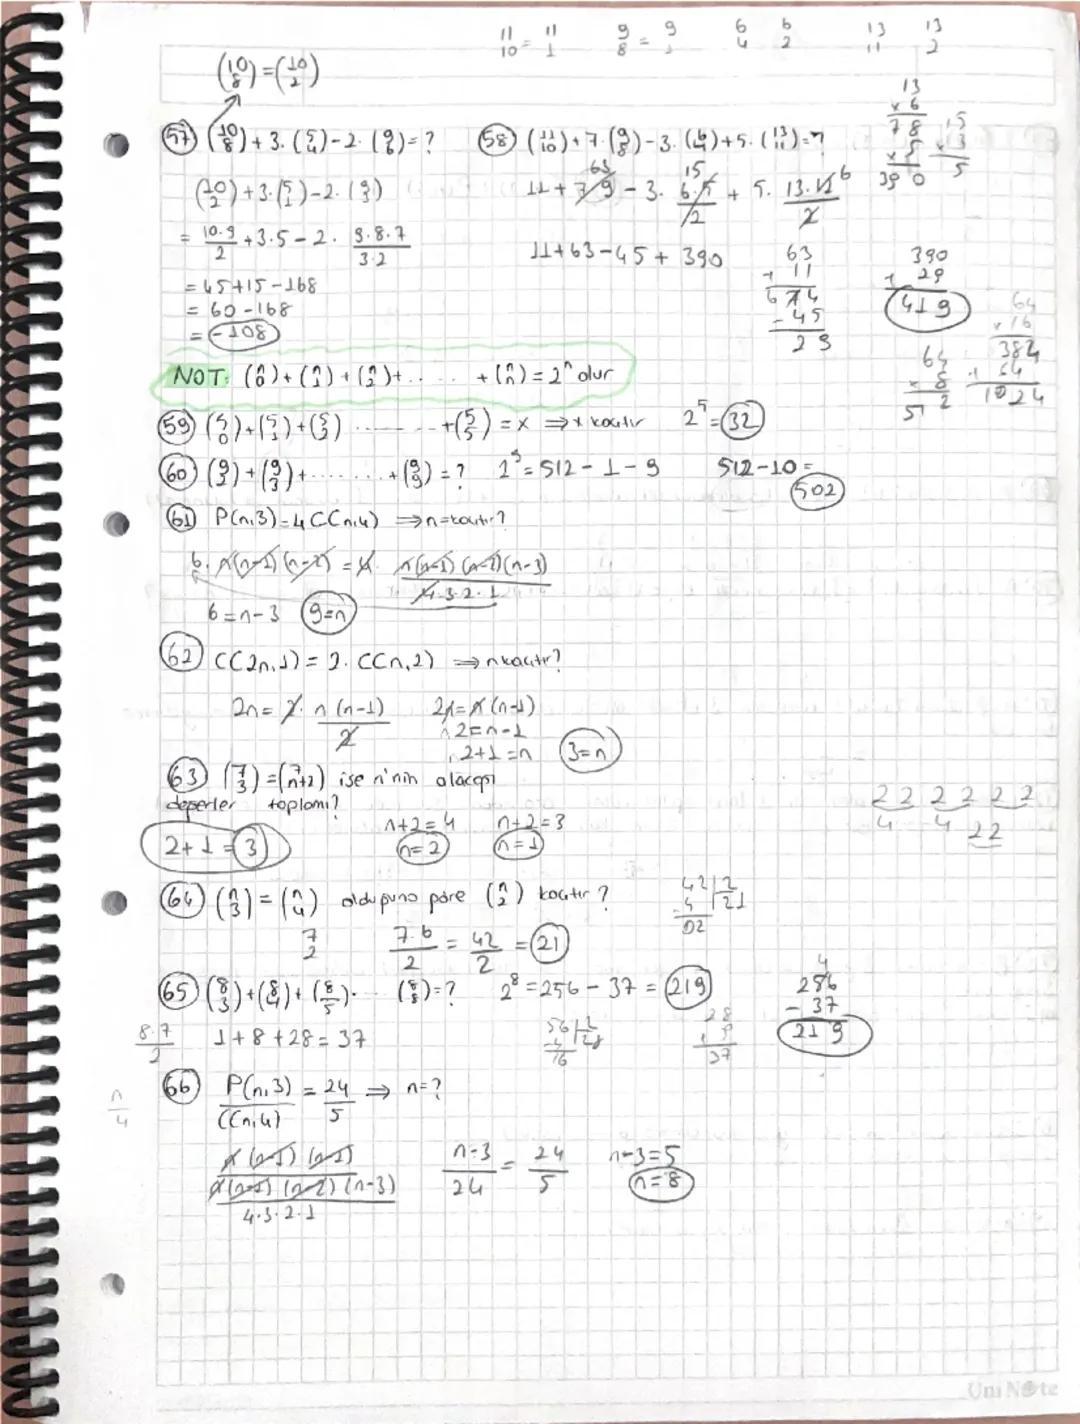 11/10 = 11/1   9/8 = 9/1   6/4   6/2   13/11   13/2
(10/8) = (10/2)
57) (10/8) + 3.(5/4) - 2.(9/6) = ?
(10/2) + 3.(5/1) - 2.(9/3)
= 10.9/2 + 3.5 - 2. 9.8.7/3.2
= 45+15-168
= 60-168
= -108
58) (11/10) + 7.(9/8) - 3.(6/4) + 5.(13/11) = ?
11 + 7.9 - 3. 6.5/2 + 5. 13.12/2
63   15   6
11+63-45+390
63 + 11
674
- 45
29
13 x 6
78
x 5
390
15 x 3
5
390 + 29
419
64 x 8
512
64 x 16
384
+ 64
1024
NOT: (n/0) + (n/1) + (n/2) + ...... + (n/n) = 2ⁿ olur
59) (5/0) + (5/1) + (5/2) ........ + (5/5) = x ⇒ x kaçtır   2⁵ = 32
60) (9/2) + (9/3) + ........ + (9/9) = ?   2⁹ = 512 - 1 - 9   512-10 =
502
61) P(n,3) = 4C(n,4) ⇒ n = kaçtır?
6. n(n-1)(n-2) = 4. n(n-1)(n-2)(n-3)/4.3.2.1
6 = n-3   9=n
62) C(2n,1) = 2.C(n,2) ⇒ n kaçtır?
2n = 2. n(n-1)/2   2n = n(n-1)
2 = n-1
2+1 = n   3=n
63) (7/3) = (7/n+2) ise n'nin alacağı
değerler toplamı?
n+2 = 4   n+2 = 3
2+1 = 3   n=2   n=1
2 2 2 2 2 2
4   4   22
64) (n/3) = (n/4) olduğuna göre (n/2) kaçtır?
7/2   7.6/2 = 42/2 = 21
42 | 2
- 4 | 21
02
65) (8/3) + (8/4) + (8/5) ... (8/8) = ?   2⁸ = 256 - 37 = 219
8.7/2   1+8+28 = 37
56 | 2
16
28
+ 9
37
4
256
- 37
219
66) P(n,3)/C(n,4) = 24/5 ⇒ n = ?
n/4
n(n-1)(n-2)/n(n-1)(n-2)(n-3)/4.3.2.1   n-3/24 = 24/5   n-3=5
n=8
UniNote